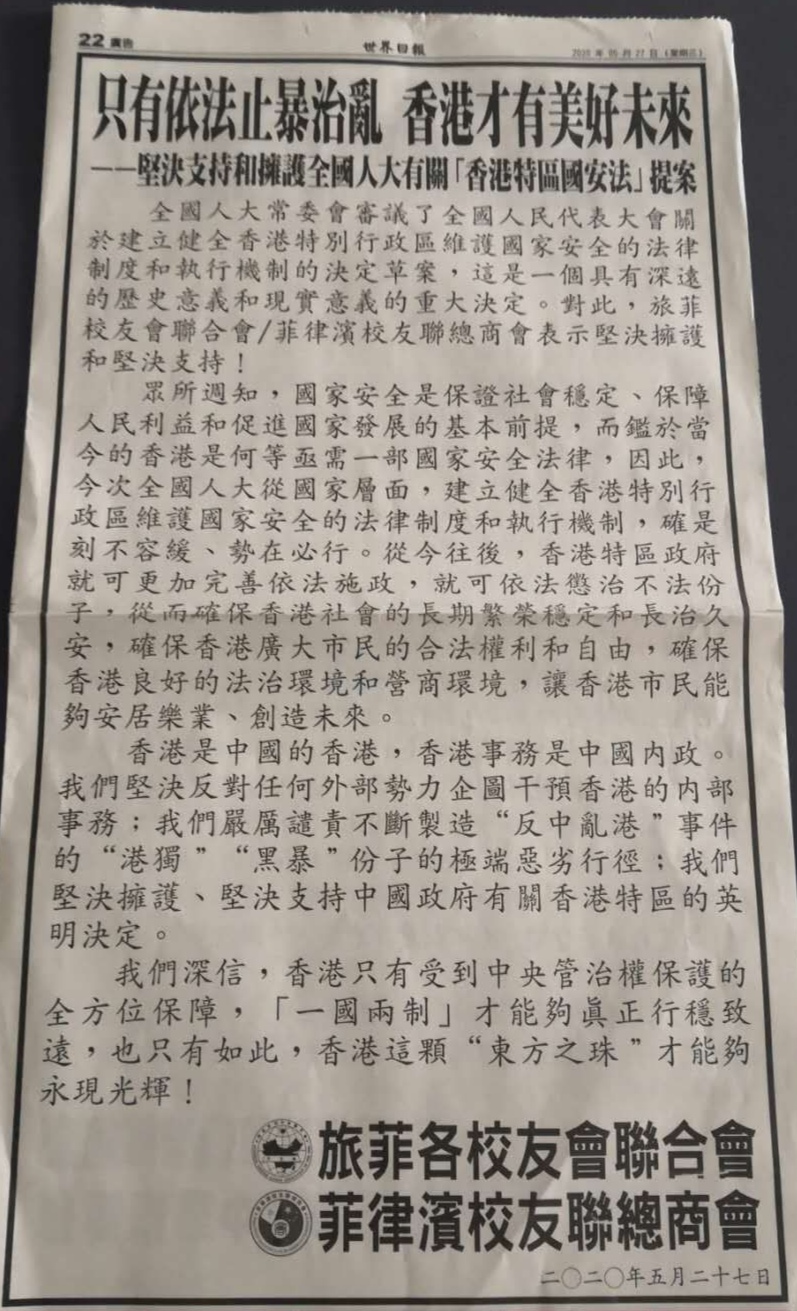 22 廣告
世界日報
2020 年 05 月 27 日 (星期三)
只有依法止暴治亂 香港才有美好未來
——堅決支持和擁護全國人大有關「香港特區國安法」提案
全國人大常委會審議了全國人民代表大會關
於建立健全香港特別行政區維護國家安全的法律
制度和執行機制的決定草案，這是一個具有深遠
的歷史意義和現實意義的重大決定。對此，旅菲
校友會聯合會/菲律濱校友聯總商會表示堅決擁護
和堅決支持！
眾所週知，國家安全是保證社會穩定、保障
人民利益和促進國家發展的基本前提，而鑑於當
今的香港是何等亟需一部國家安全法律，因此，
今次全國人大從國家層面，建立健全香港特別行
政區維護國家安全的法律制度和執行機制，確是
刻不容緩、勢在必行。從今往後，香港特區政府
就可更加完善依法施政，就可依法懲治不法份
子，從而確保香港社會的長期繁榮穩定和長治久
安，確保香港廣大市民的合法權利和自由，確保
香港良好的法治環境和營商環境，讓香港市民能
夠安居樂業、創造未來。
香港是中國的香港，香港事務是中國內政。
我們堅決反對任何外部勢力企圖干預香港的内部
事務；我們嚴厲譴責不斷製造“反中亂港”事件
的“港獨”“黑暴”份子的極端惡劣行徑；我們
堅決擁護、堅決支持中國政府有關香港特區的英
明決定。
我們深信，香港只有受到中央管治權保護的
全方位保障，「一國兩制」才能夠眞正行穩致
遠，也只有如此，香港這顆“東方之珠”才能夠
永現光輝！
旅菲各校友會聯合會
菲律濱校友聯總商會
二〇二〇年五月二十七日